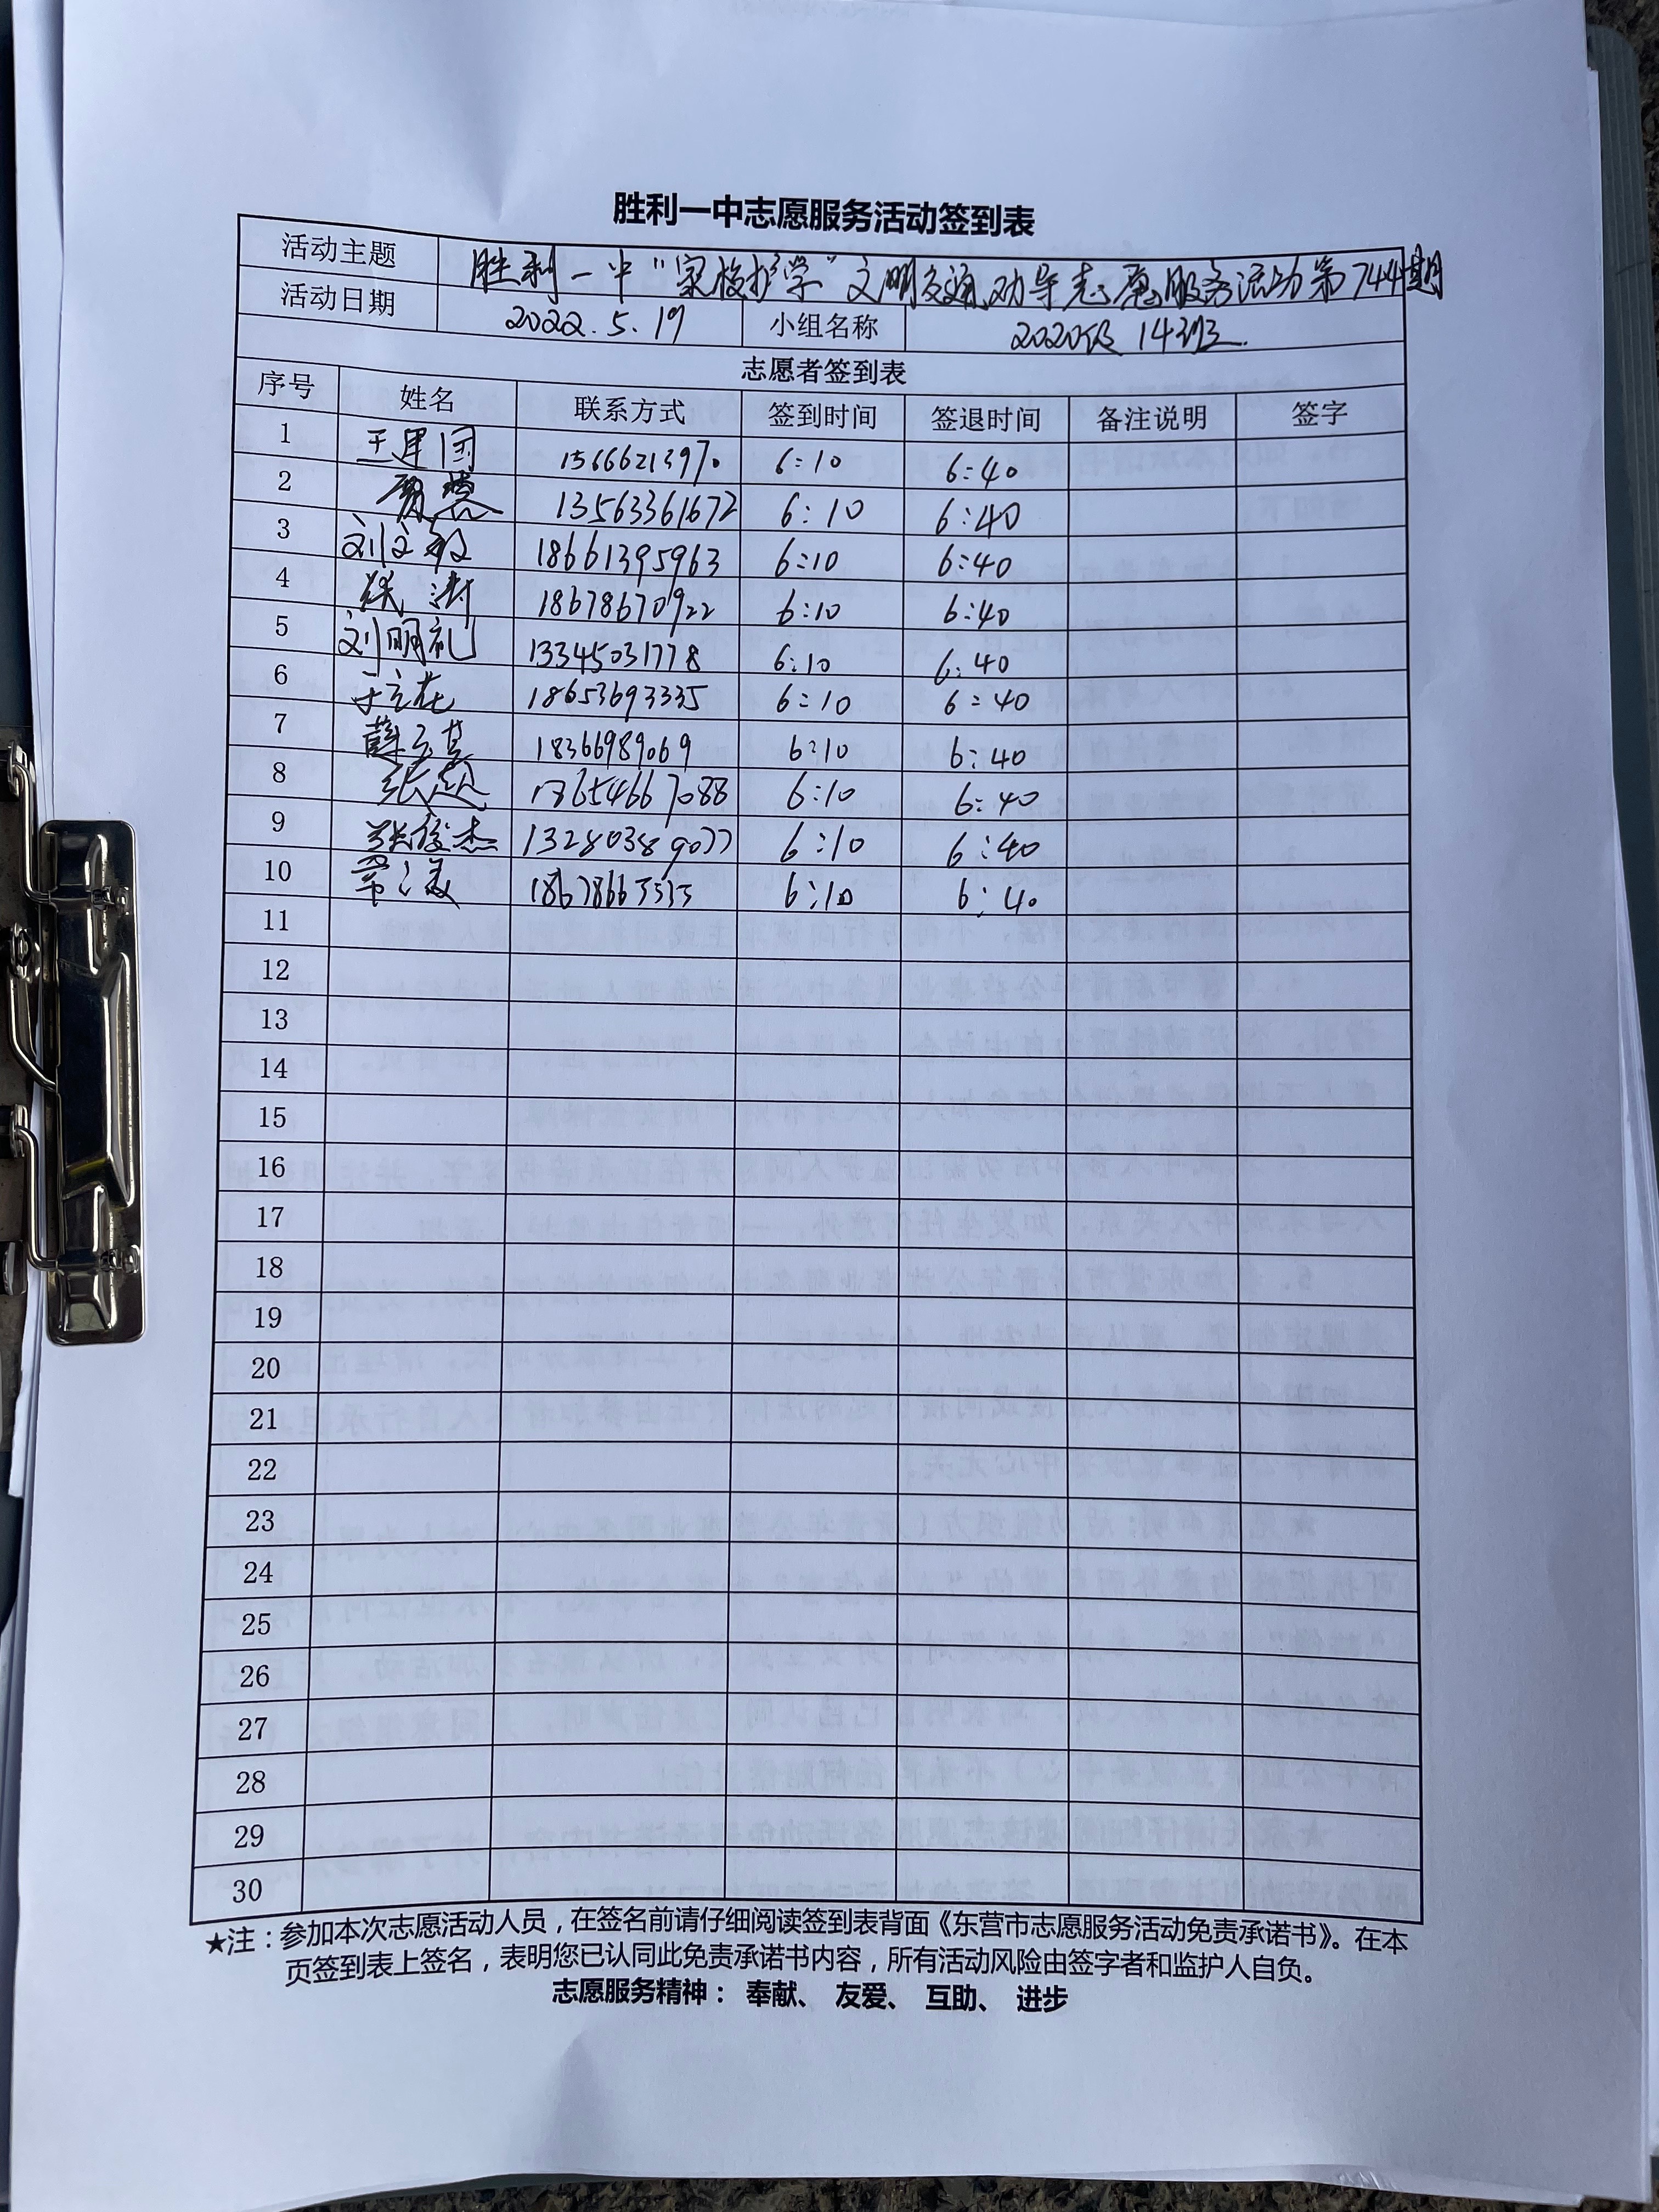 胜利一中志愿服务活动签到表
活动主题 胜利一中“家校护学”文明交通劝导志愿服务活动第744期
活动日期 2022.5.19 小组名称 2020级14班
志愿者签到表
序号 姓名 联系方式 签到时间 签退时间 备注说明 签字
1 王建国 15666213970 6:10 6:40
2 13563361672 6:10 6:40
3 刘文敏 18661395963 6:10 6:40
4 18678670922 6:10 6:40
5 刘明礼 13345031778 6:10 6:40
6 于立花 18653693335 6:10 6:40
7 薛云其 18366989069 6:10 6:40
8 张超 13654667088 6:10 6:40
9 张俊杰 13280389077 6:10 6:40
10 6:10 6:40
11
12
13
14
15
16
17
18
19
20
21
22
23
24
25
26
27
28
29
30
★注：参加本次志愿活动人员，在签名前请仔细阅读签到表背面《东营市志愿服务活动免责承诺书》。在本
页签到表上签名，表明您已认同此免责承诺书内容，所有活动风险由签字者和监护人自负。
志愿服务精神： 奉献、 友爱、 互助、 进步